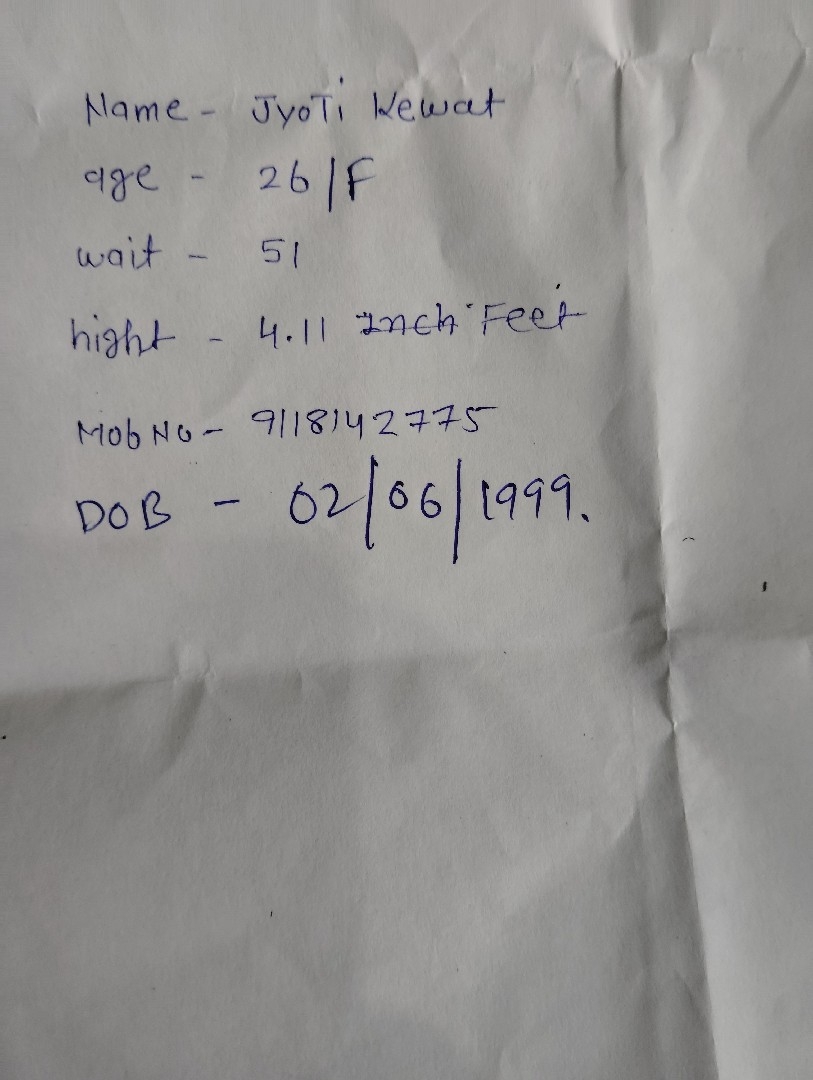 Name - Jyoti Kewat
age - 26/F
wait - 51
hight - 4.11 Inch Feet
Mob No - 9118142775
DOB - 02/06/1999.